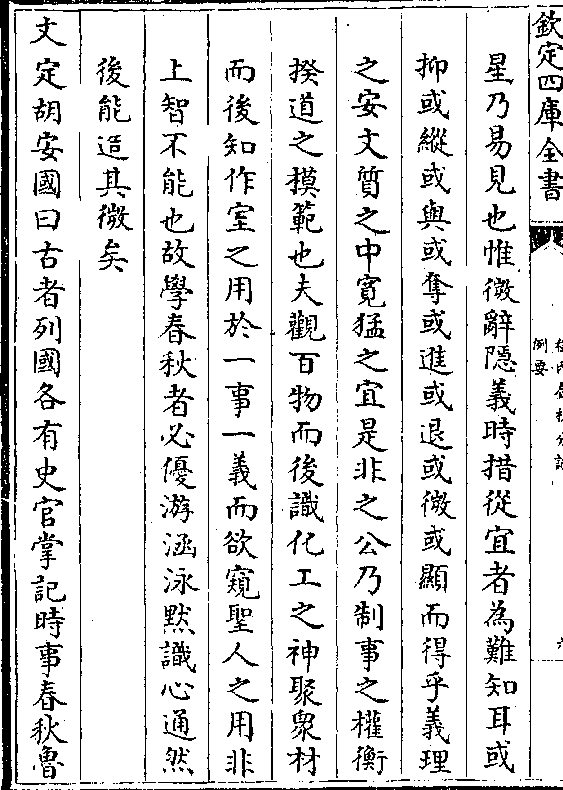 欽定四庫全書
例要
六
星乃易見也惟微辭隱義時措從宜者為難知耳或
抑或縱或與或奪或進或退或微或顯而得乎義理
之安文質之中寛猛之宜是非之公乃制事之權衡
揆道之模範也夫觀百物而後識化工之神聚衆材
而後知作室之用於一事一義而欲窺聖人之用非
上智不能也故學春秋者必優游涵泳黙識心通然
後能造其微矣
文定胡安國曰古者列國各有史官掌記時事春秋魯